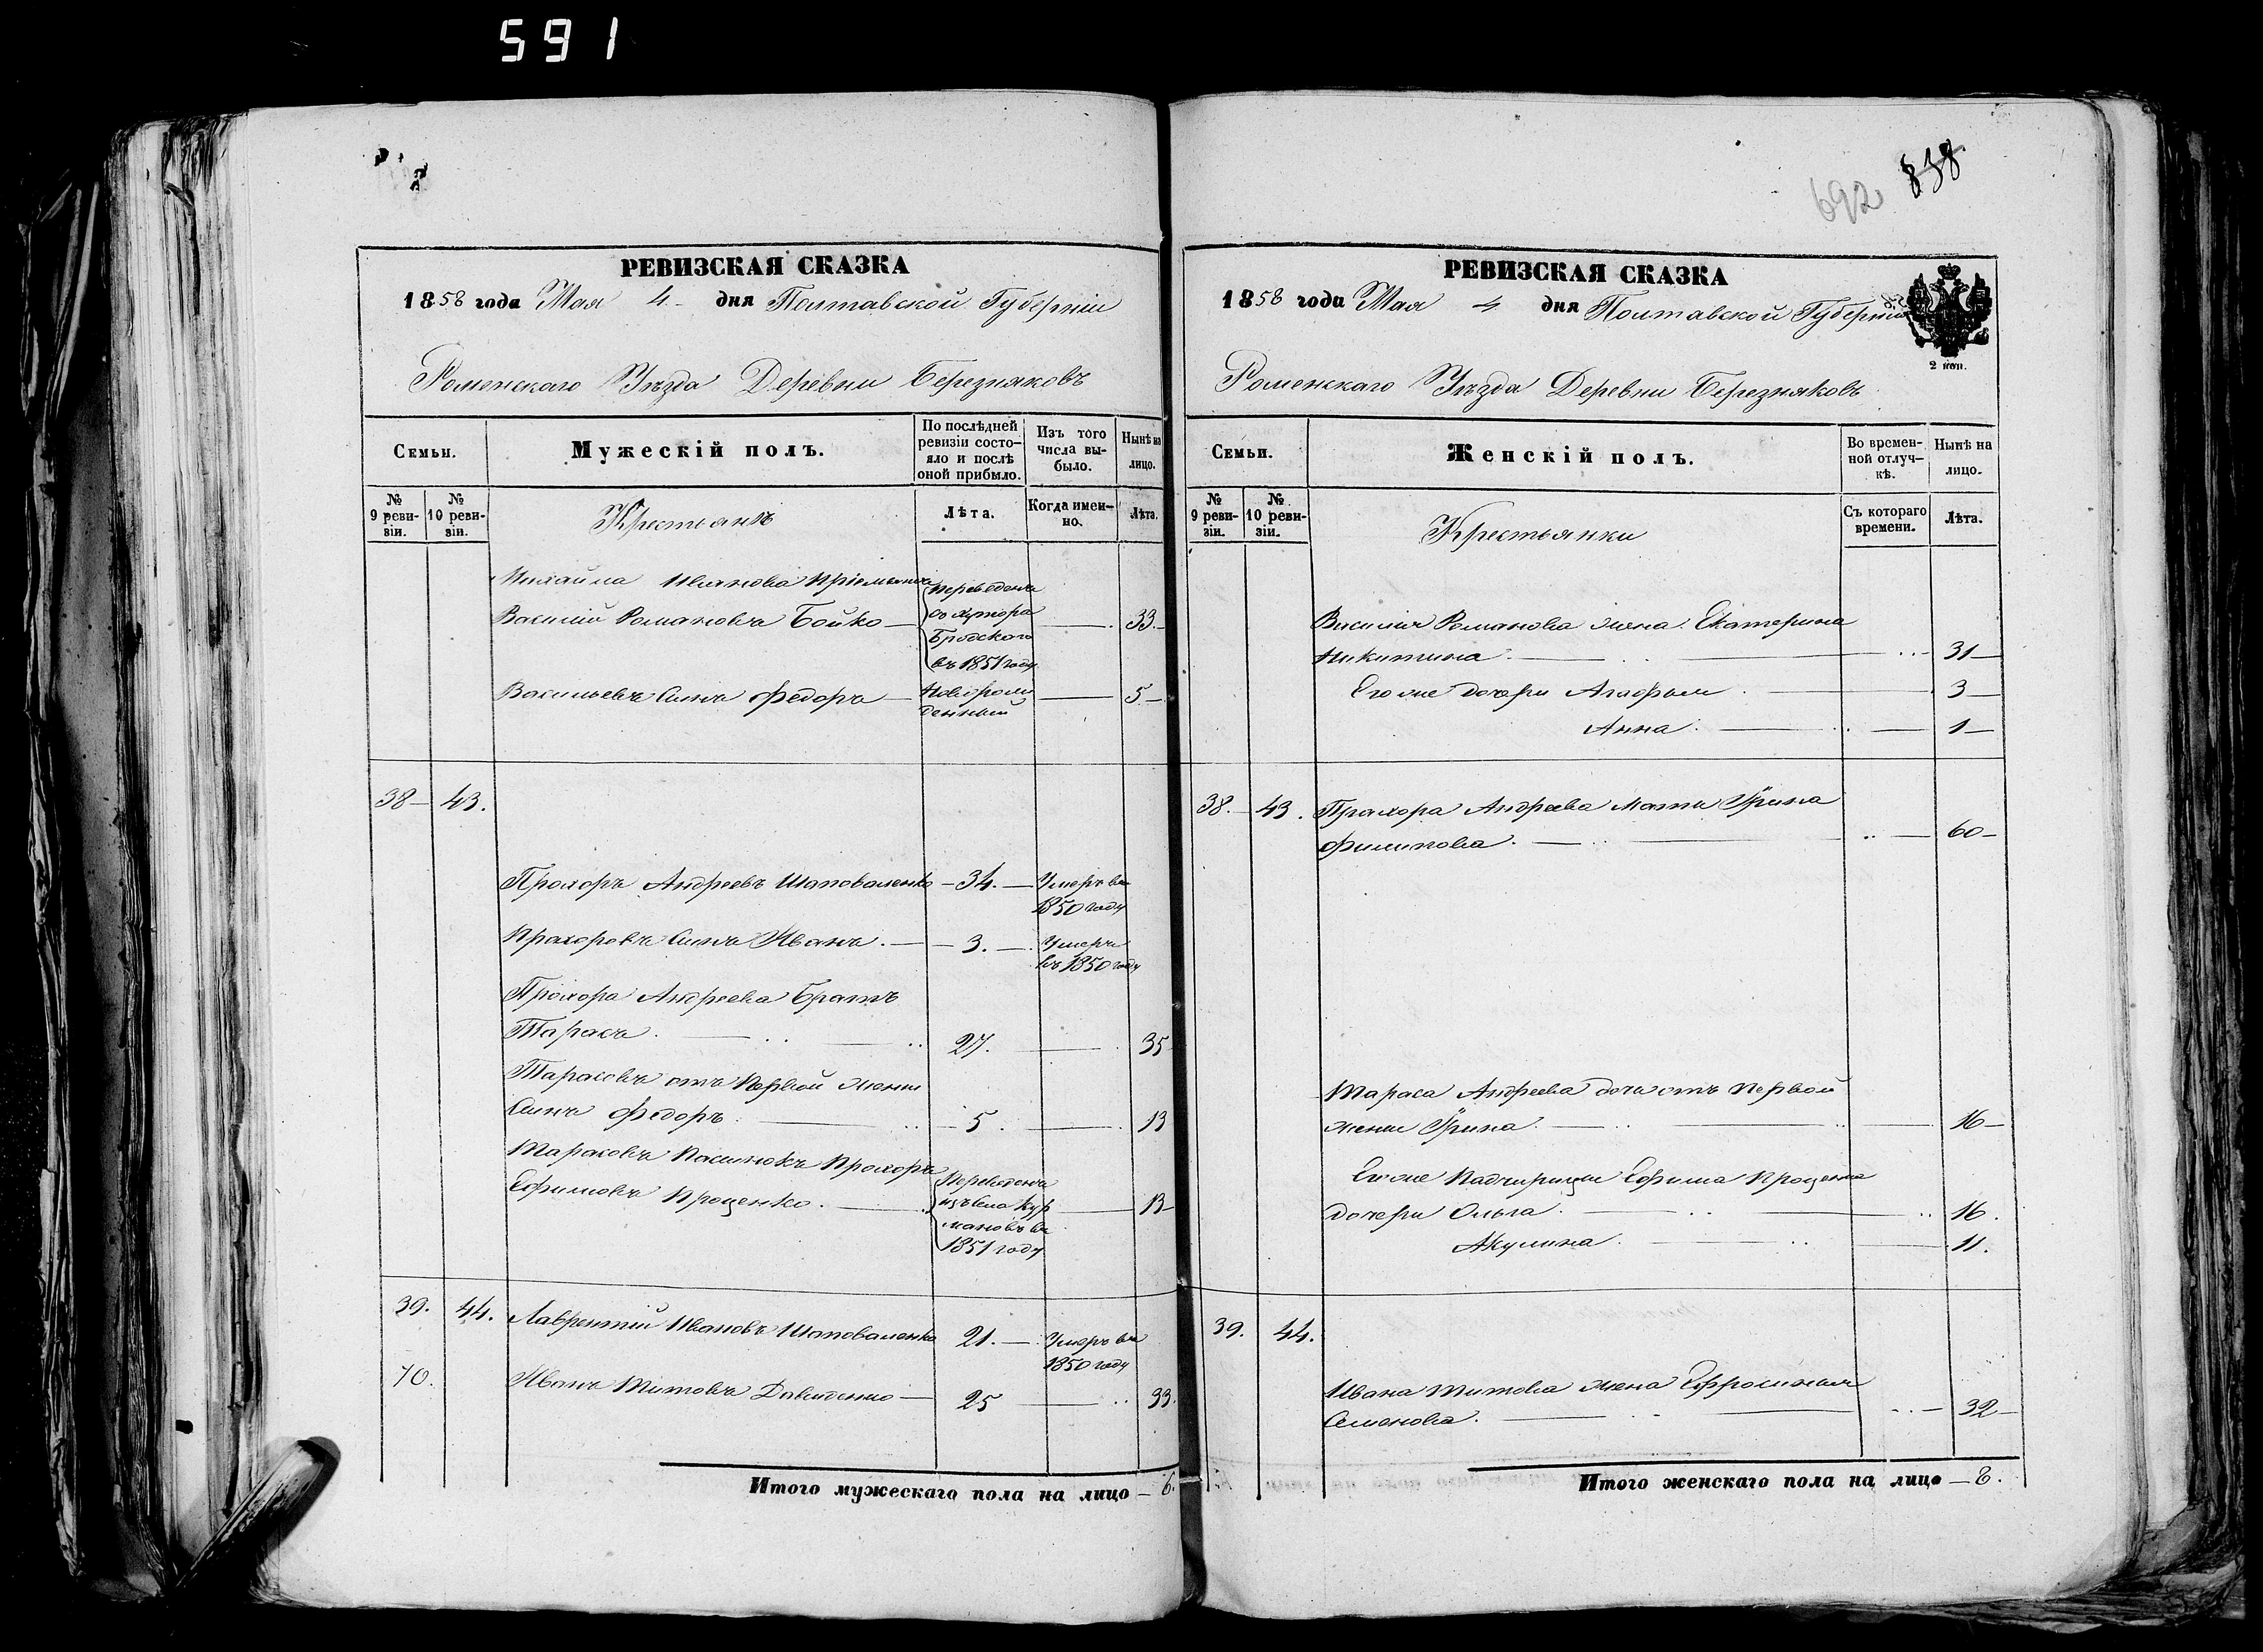 591
РЕВИЗСКАЯ СКАЗКА
1858 года Мая 4 дня Полтавской Губерніи
Роменскаго Уѣзда Деревни Березняковъ
Семьи.
Мужескій полъ.
По послѣдней ревизіи состо-
яло и послѣ
оной прибыло.
Изъ того
числа вы-
было.
Нынѣ на
лицо.
№
9 реви-
зіи.
№
10 реви-
зіи.
Крестьянъ
Лѣта.
Когда имен-
но.
Лѣта.
Михайла Иванова Пріемышъ
Василій Романовъ Бойко — Переведенъ
съ хутора
Бродского
въ 1851 году — 33.
Васильевъ Сынъ Федоръ — Новорож
денный — 5.
38 — 43.
Прохоръ Андреевъ Шаповаленко — 34. — Умеръ въ
1850 году
Прохоровъ Сынъ Иванъ. — 3. — Умеръ
въ 1850 году
Прохора Андреева Братъ
Тарасъ. — 27. — 35
Тарасовъ отъ Первой жены
Сынъ Федоръ. — 5. — 13
Тарасовъ Пасынокъ Прохоръ
Ефимовъ Проценко. — Переведенъ
изъ села Кур
мановъ въ
1851 году — 13
39. 44. Лаврентій Ивановъ Шаповаленко 21. — Умеръ въ
1850 году
70. Иванъ Титовъ Давиденко — 25 — 33.
Итого мужескаго пола на лицо — 6.
692 838
РЕВИЗСКАЯ СКАЗКА
1858 года Мая 4 дня Полтавской Губерніи
2 коп.
Роменскаго Уѣзда Деревни Березняковъ
Семьи.
Женскій полъ.
Во времен-
ной отлуч-
кѣ.
Нынѣ на
лицо.
№
9 реви-
зіи.
№
10 реви-
зіи.
Крестьянки
Съ котораго
времени.
Лѣта.
Василія Романова жена Екатерина
Никитина. — 31
Его же дочери Агафья — 3
Анна. — 1
38. 43. Прохора Андреева Мать Ирина
Филипова. — 60
Тараса Андреева дочь отъ Первой
жены Ирина — 16
Его же Падчирицы Ефима Проценка
дочери Ольга. — 16.
Акулина. — 11.
39. 44.
Ивана Титова жена Ефросинья
Семенова. — 32
Итого женскаго пола на лицо — 8.